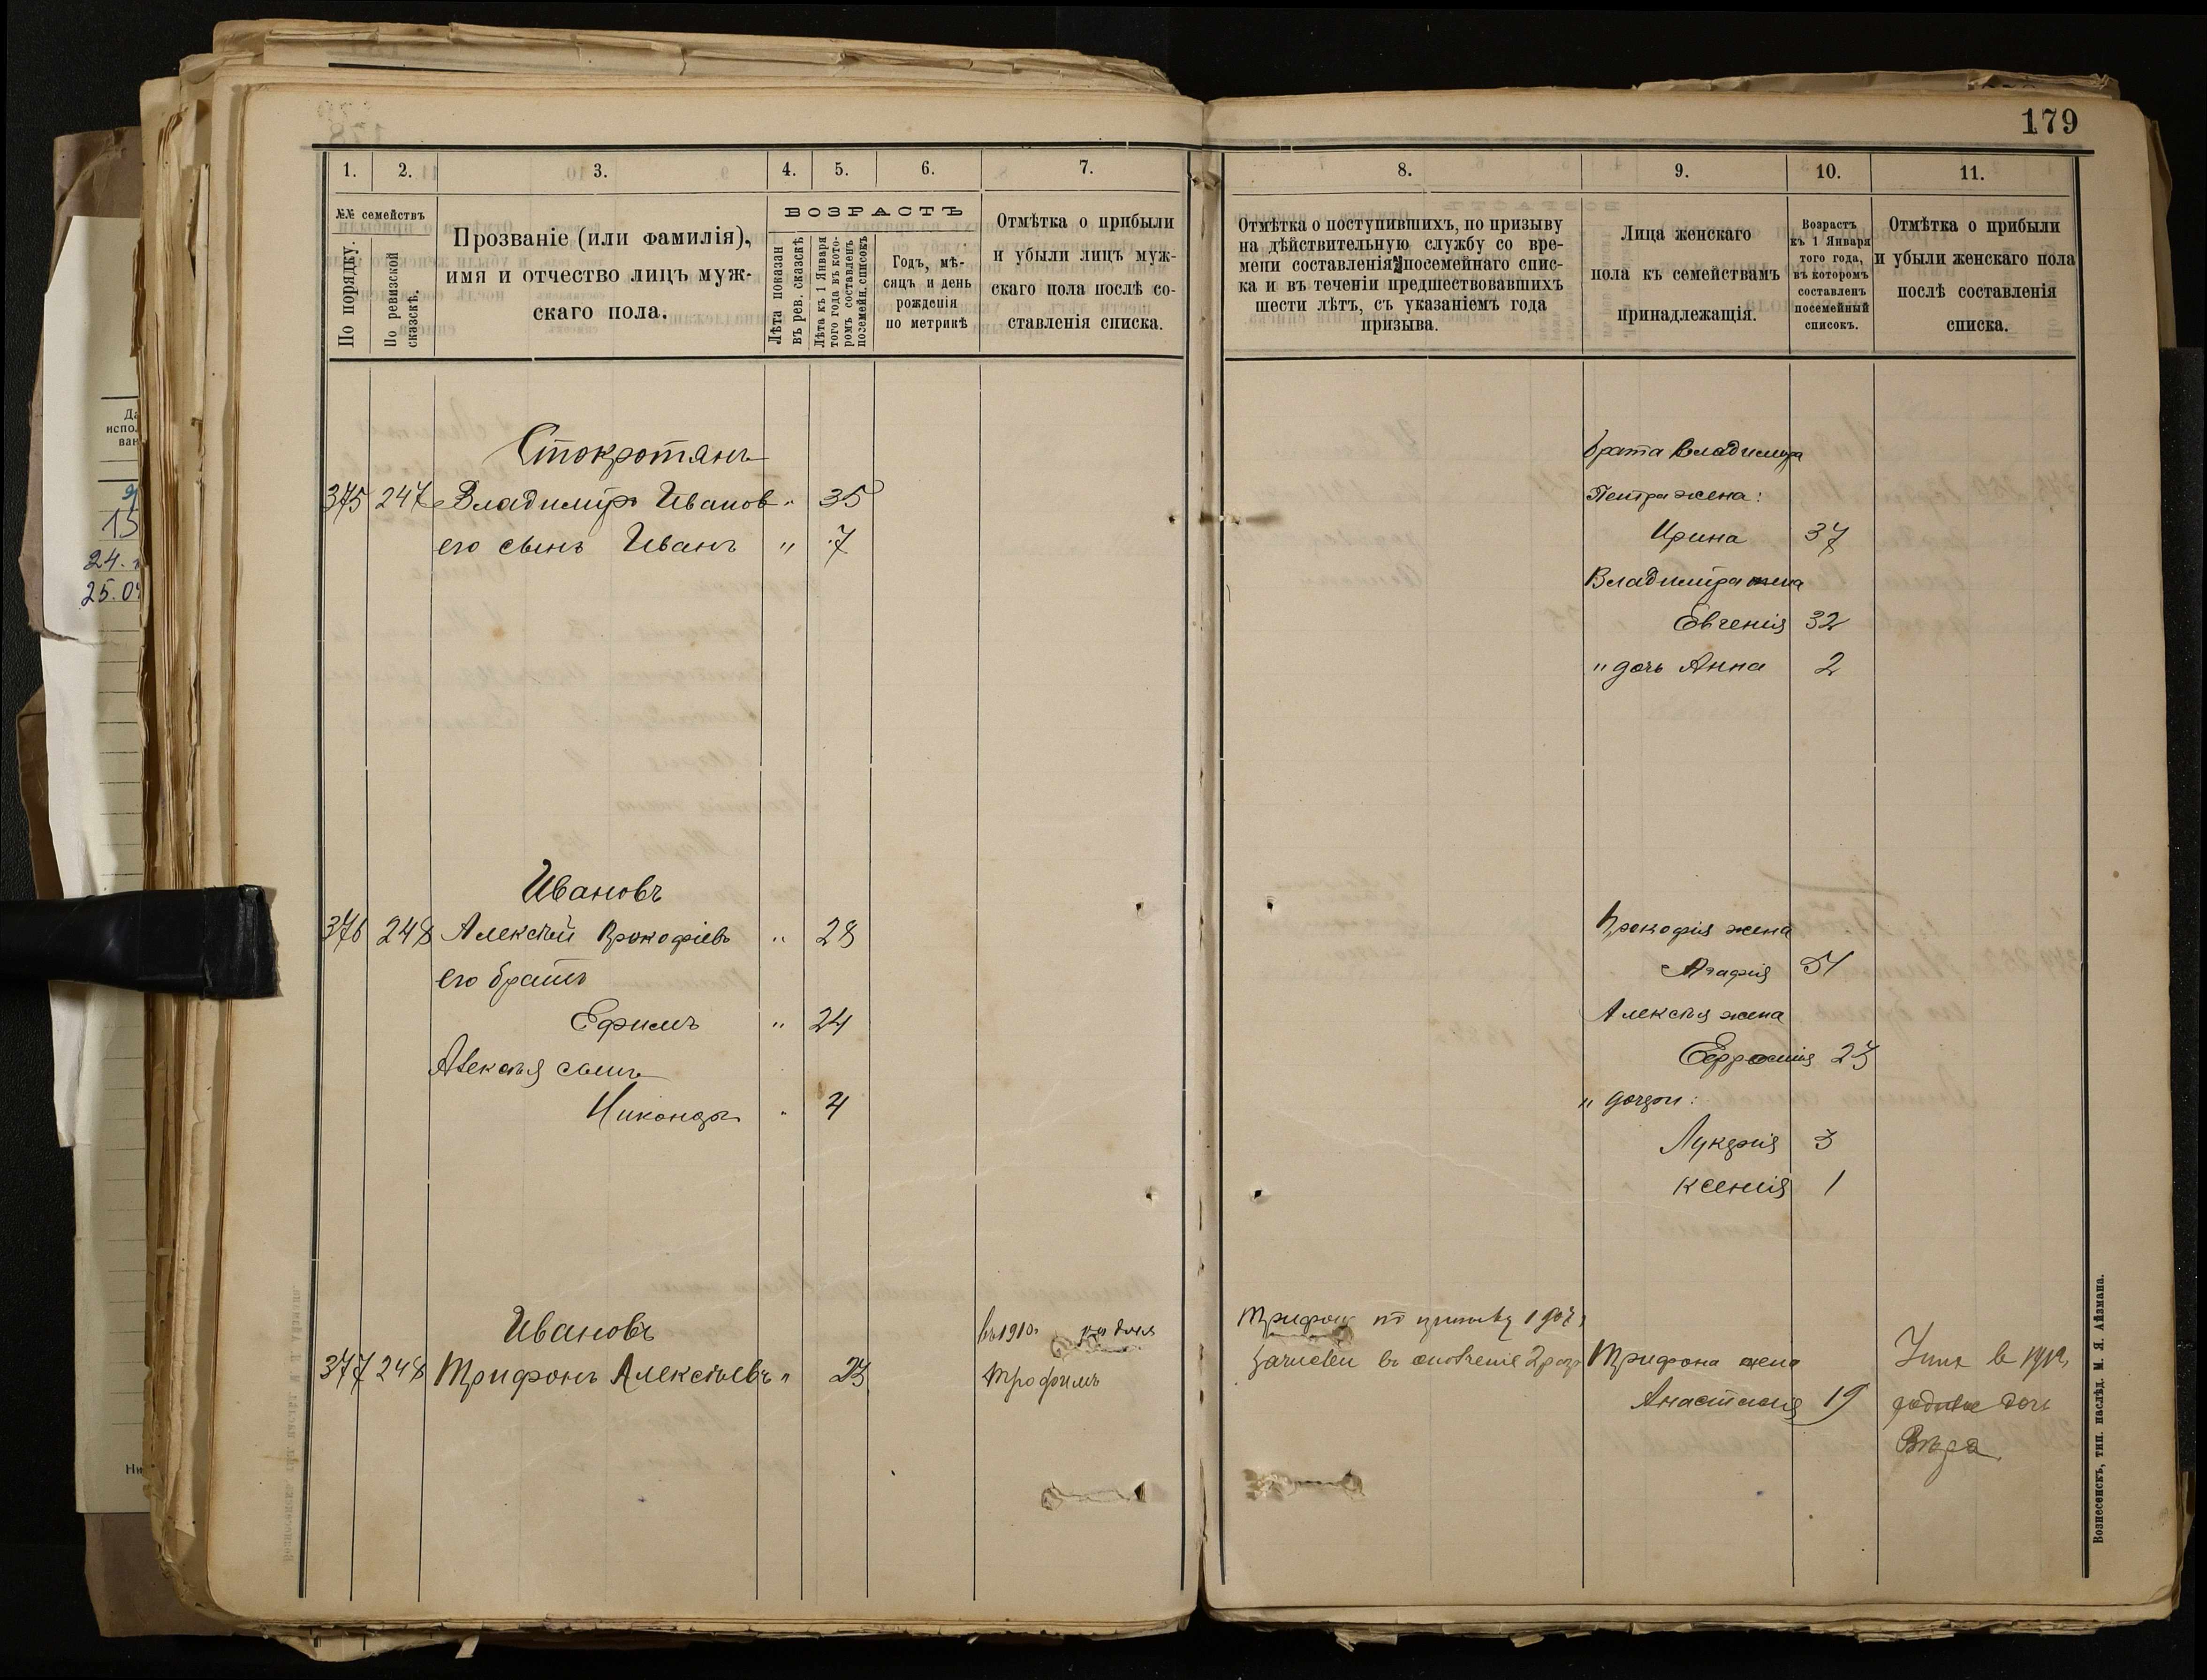 179
1.
2.
3.
4.
5.
6.
7.
№№ семействъ
По порядку.
По ревизской сказкѣ.
Прозваніе (или фамилія),
имя и отчество лицъ муж-
скаго пола.
ВОЗРАСТЪ
Лѣта показан
въ рев. сказскѣ
Лѣта къ 1 Января
того года въ кото-
ромъ составленъ
посемейн. списокъ
Годъ, мѣ-
сяцъ и день
рожденія
по метрикѣ
Отмѣтка о прибыли
и убыли лицъ муж-
скаго пола послѣ со-
ставленія списка.
Стокротянъ
375 247 Владимiръ Иванов " 35
его сынъ Иванъ " 7
Ивановъ
376 248 Алексѣй Прокофіевъ " 28
его братъ
Ефимъ " 24
Алексѣя сынъ
Никандръ " 4
Ивановъ
377 248 Трифонъ Алексѣевъ " 23
въ 1910г.
Трофимъ
8.
9.
10.
11.
Отмѣтка о поступившихъ, по призыву
на дѣйствительную службу со вре-
мени составленія посемейнаго спис-
ка и въ теченіи предшествовавшихъ
шести лѣтъ, съ указаніемъ года
призыва.
Лица женскаго
пола къ семействамъ
принадлежащія.
Возрастъ
къ 1 Января
того года,
въ которомъ
составленъ
посемейный
списокъ.
Отмѣтка о прибыли
и убыли женскаго пола
послѣ составленія
списка.
брата Владимира
Петра жена:
Ирина 37
Владимiра жена
Евгенія 32
" дочь Анна 2
Прокофія жена
Агафія 51
Алексѣя жена
Ефросинія 23
" дочери:
Лукерія 3
Ксенія 1
Трифон по призыву
зачислен въ ополченіе 2 разр
Трифона жена
Анастасія 19
дочь
Вѣра
Вознесенскъ, тип. наслѣд. М. Я. Айзмана.
Да
испол
ван
15
24.
25.0